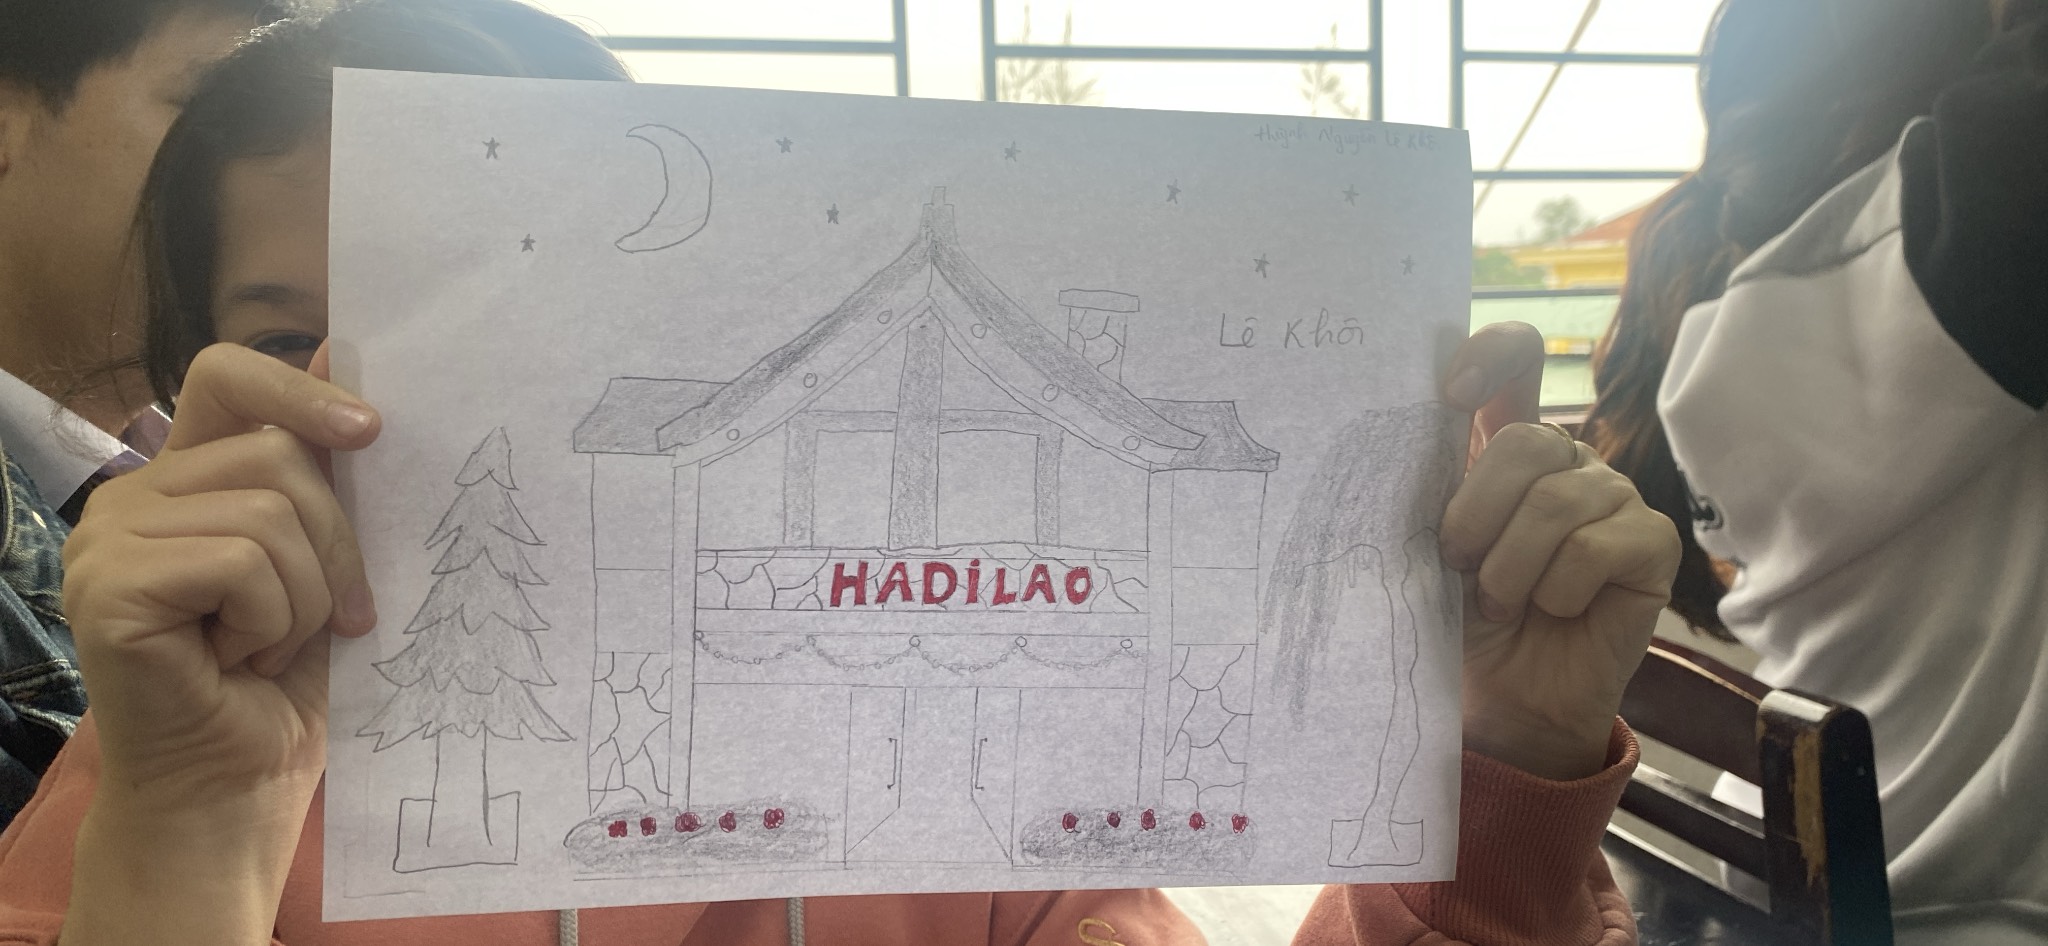 Nguyễn Lê Khô
Lê Khôi
HADiLAO